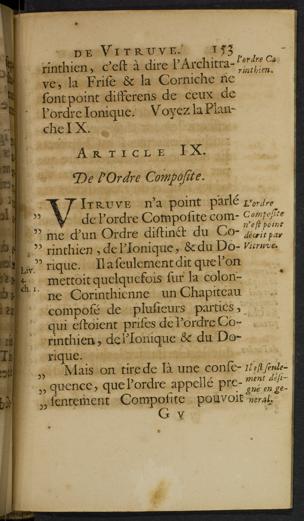 DE VITRUVE. 153
rinthien, c'est à dire l'Architra-
ve, la Frise & la Corniche ne
sont point differens de ceux de
l'ordre Ionique. Voyez la Plan-
che IX.
l'ordre Co
rinthien.
ARTICLE IX.
De l'Ordre Composite.
VITRUVE n'a point parlé
„ de l'ordre Composite com-
„ me d'un Ordre distinct du Co-
„ rinthien, de l'Ionique, & du Do-
„ rique. Il a seulement dit que l'on
mettoit quelquefois sur la colon-
ne Corinthienne un Chapiteau
composé de plusieurs parties,
qui estoient prises de l'ordre Co-
rinthien, de l'Ionique & du Do-
rique.
L'ordre
Composite
n'est point
décrit par
Vitruve.
Liv.
4.
ch. 1.
„ Mais on tire de là une conse-
„ quence, que l'ordre appellé pre-
„ sentement Composite pouvoit
Il est seule-
ment dési-
gné en ge-
neral.
G v